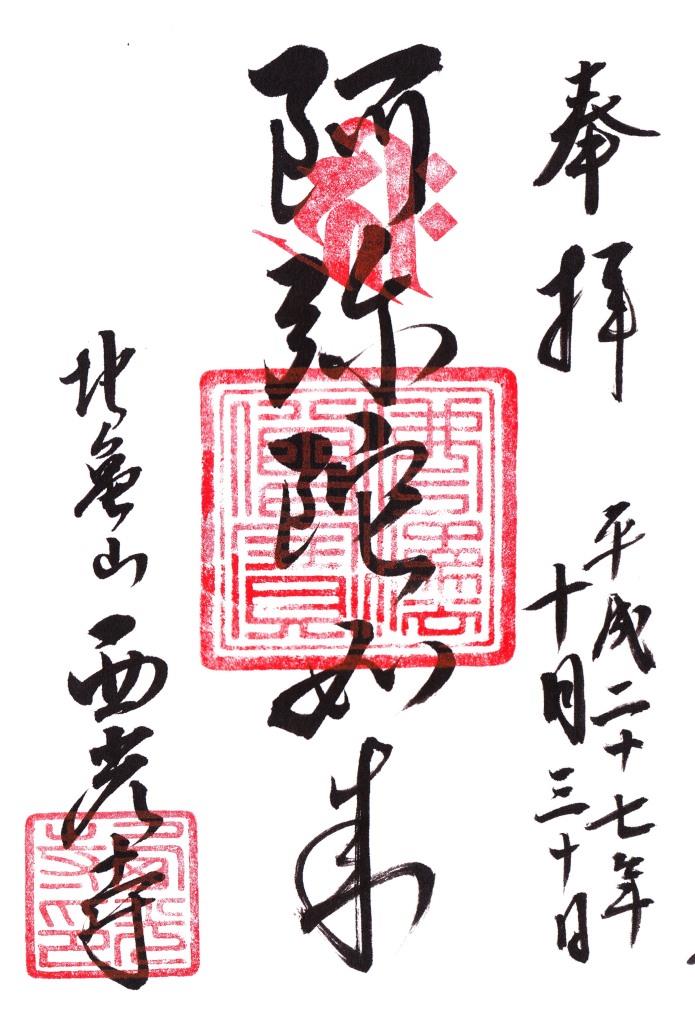 奉拝
平成二十七年
十月三十日
阿弥陀如来
地亀山 西光寺